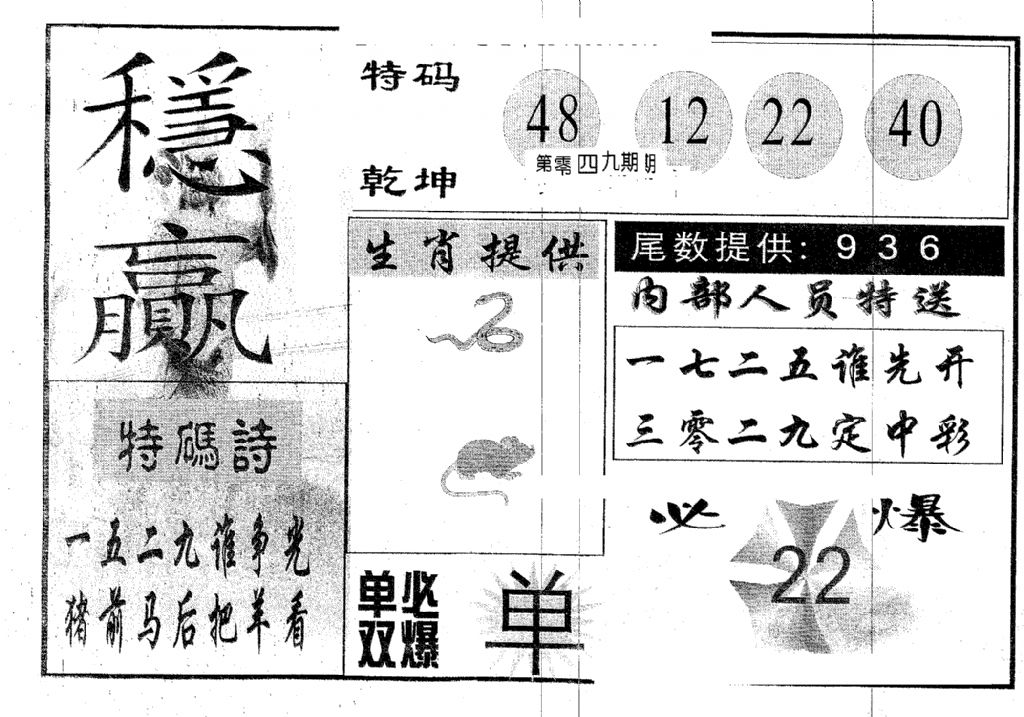 穩贏
特码
乾坤
48 12 22 40
第零四九期
生肖提供
尾数提供: 9 3 6
内部人员特送
一七二五谁先开
三零二九定中彩
特碼詩
一五二九谁争光
猪前马后把羊看
必爆
22
单双
必爆
单